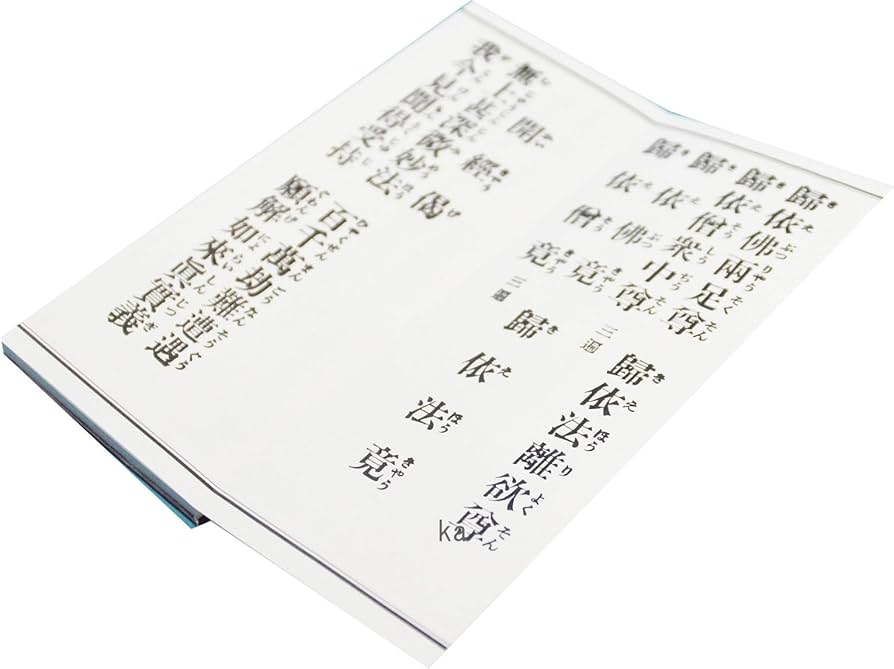 歸依佛兩足尊 歸依法離欲尊
歸依僧衆中尊 三遍
歸依佛竟 歸依法竟
歸依僧竟 三遍
開經偈
無上甚深微妙法 百千萬劫難遭遇
我今見聞得受持 願解如來眞實義